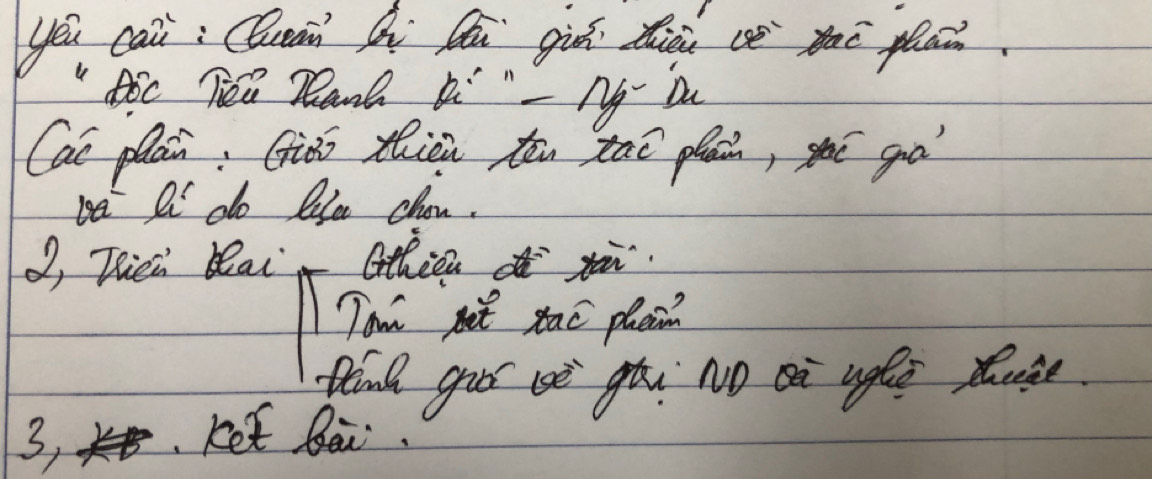 Yêu cầu : Chuẩn bị bài giới thiệu về tác phẩm .
"Độc Tiểu Thanh kí" – Ng~ Du
Các phần : Giới thiệu tên tác phẩm , tác giả
và lí do lựa chọn .
2, Triển khai – Gthiệu đề tài .
Tóm tắt tác phẩm
Đánh giá về gtrị ND và nghệ thuật .
3, . Kết bài .